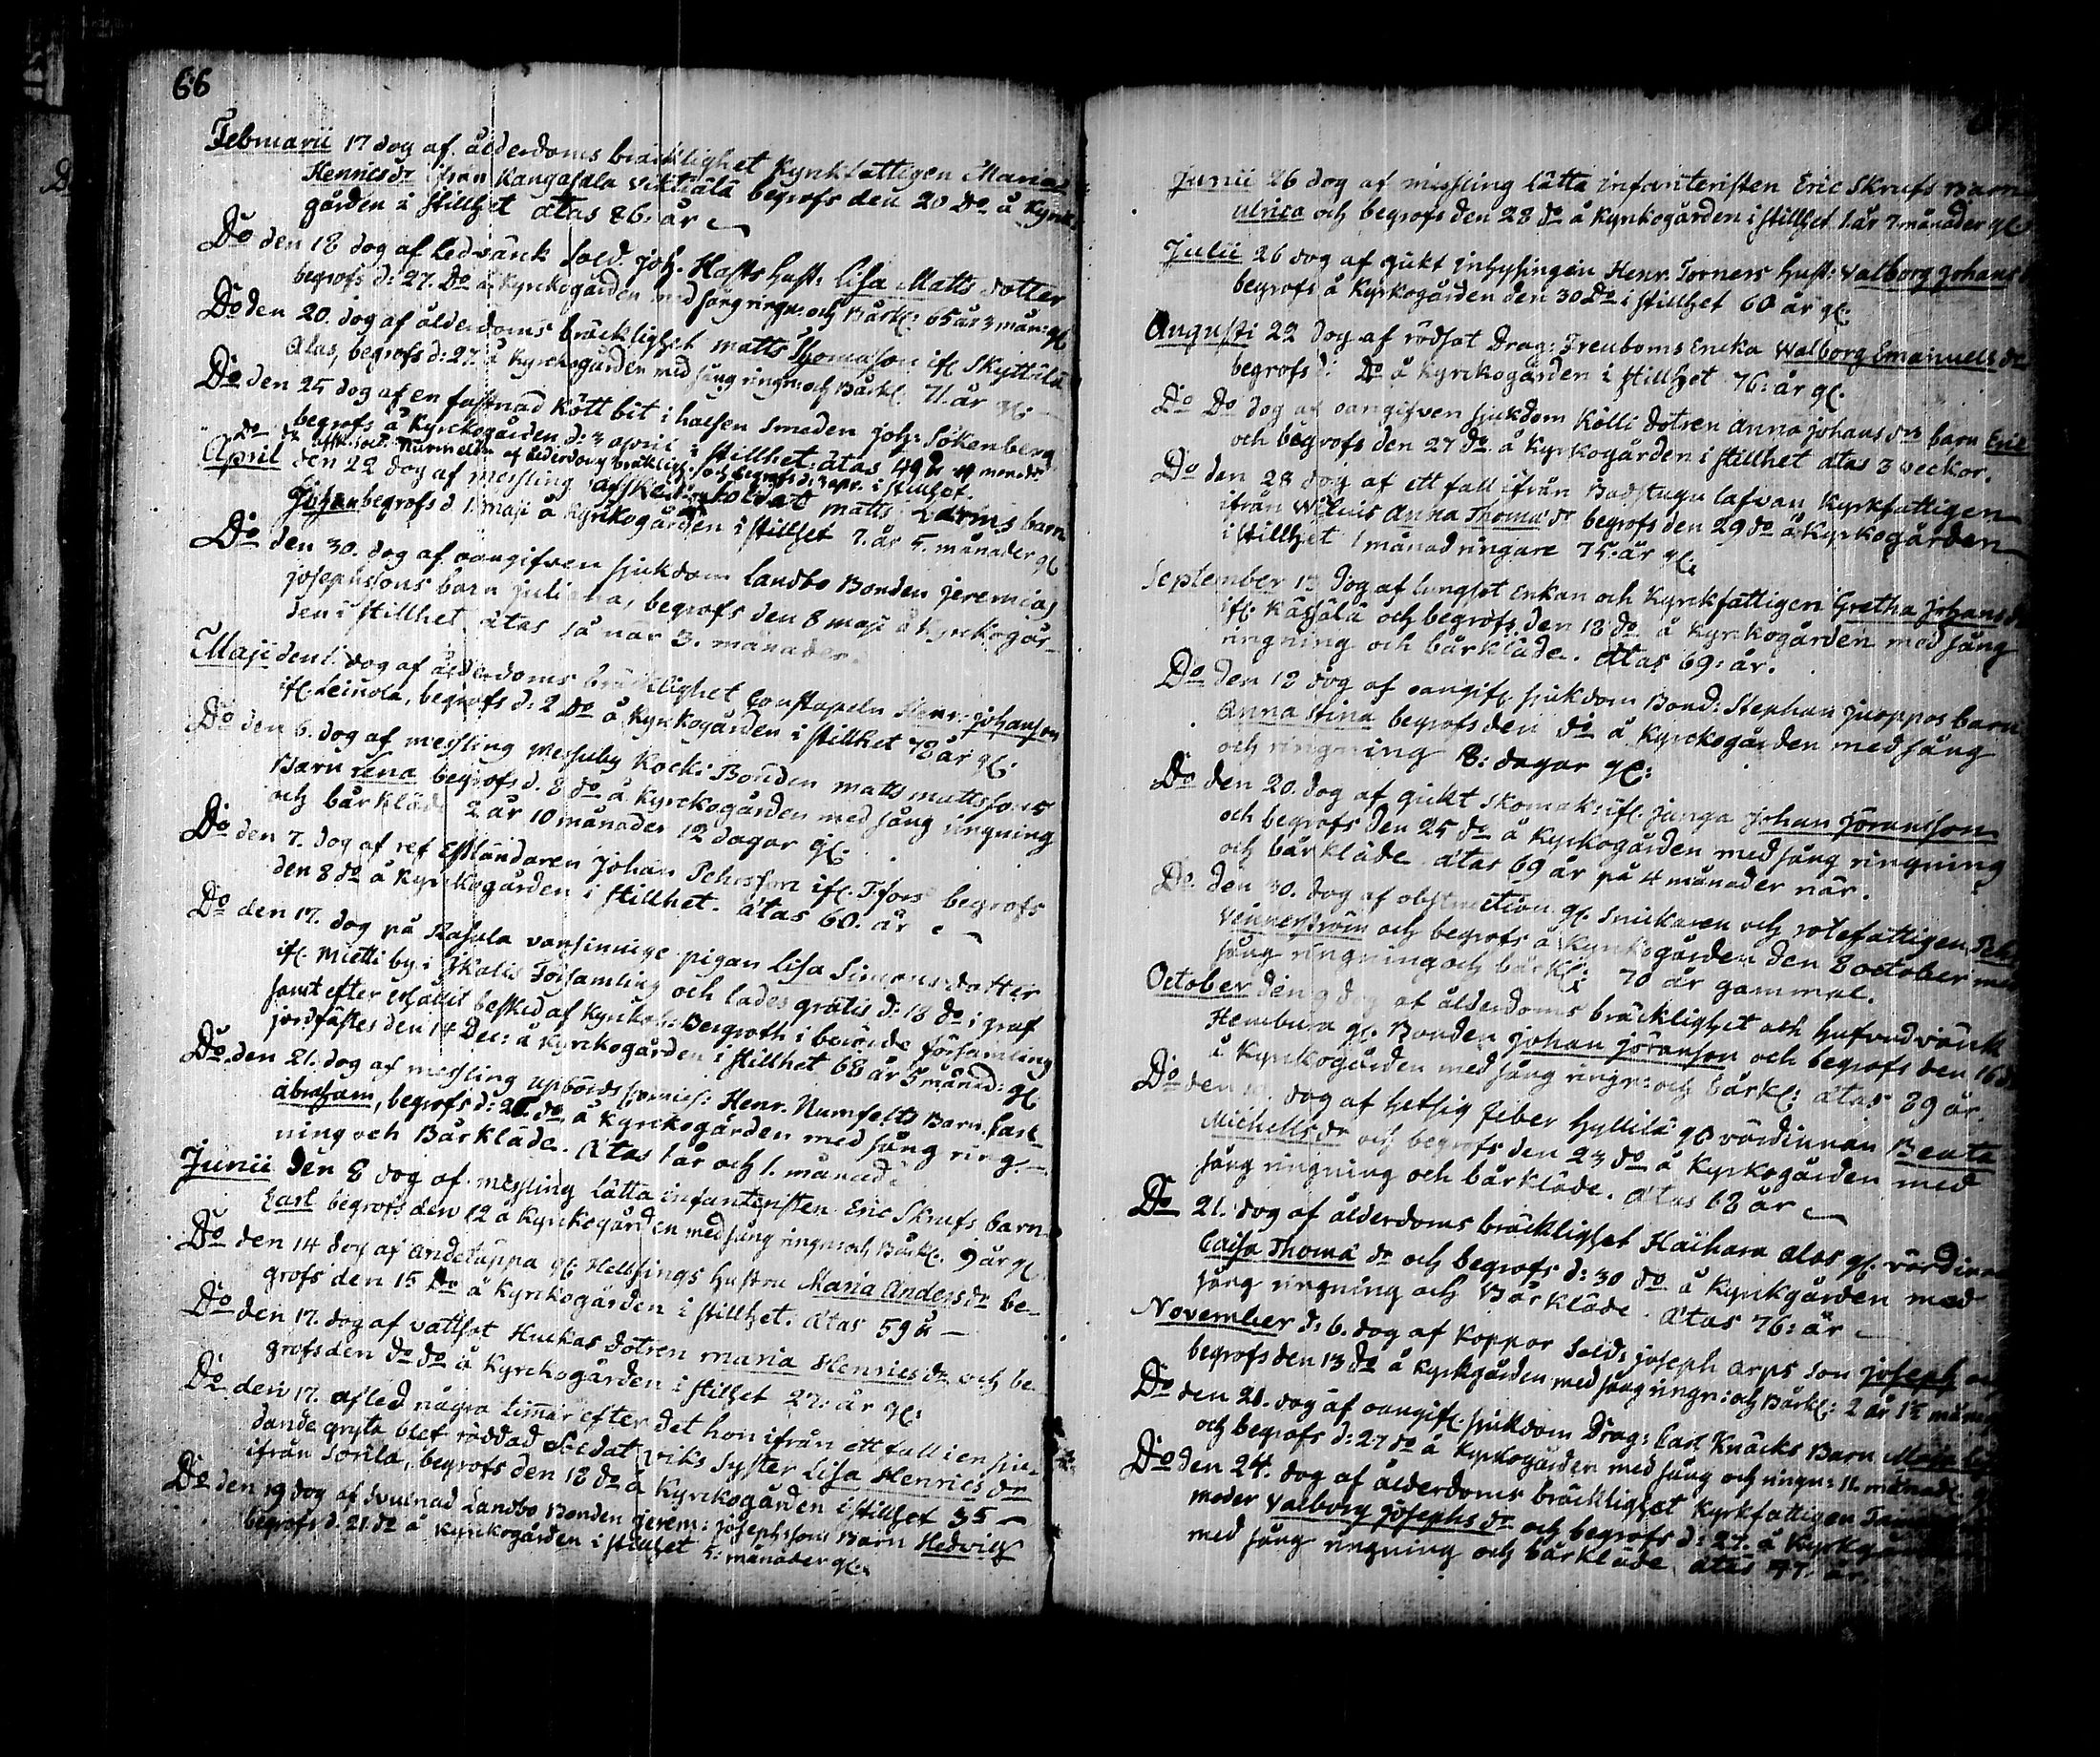 66
Februarii 17 dog af ålderdoms bräcklighet Kyrkfattigen Maria
Henricsdr ifrån Kangasala begrofs den 20 Do å Kyrko-
gården i stillhet ätas 86: år
Do den 18 dog af Ledvärk Sold. Joh. Hasts hust: Lisa Matts dotter
begrofs d: 27. Do å Kyrckogården med sång ringn: och Bårkl: 65 år 3 mån: gl
Do den 20. dog af ålderdoms bräcklighet Matts Thomasson ifr Skyttälä
Alas, begrofs d: 27 å Kyrckogården med sång ringn: och Bårkl: 71. år gl:
Do den 25 dog af en fastnad Kött bit i halsen Smeden Joh: Sökenberg
begrofs å Kyrckogården d: 3 april i stillhet: ätas 49 år
Do af ålderdoms bräckligh: och begrofs d: 3 apr. i stillhet.
April den 22 dog af messling afskedade Soldat Matts barn
Johan begrofs d 1. maji å Kyrkogården i stillhet 7. år 5. månader gl
Do den 30. dog af oangifven sjukdom Landbo Bonden Jeremias
Josephssons barn Juliana, begrofs den 8 maji å Kyrckogår-
den i stillhet ätas så när 3. månader.
Maji den 1. dog af ålderdoms bräcklighet Constapeln Henr: Johansson
ifr. Leinola, begrofs d: 2 Do å Kyrkogården i stillhet 78 år gl:
Do den 6. dog af messling Messuby Kocki Bonden Matts Mattssons
Barn Lena begrofs d. 8 do å Kyrckogården med sång ringning
och bårkläde 2 år 10 månader 12 dagar gl.
Do den 7. dog af ref Estländaren Johan Pehrsson ifr. T:fors begrofs
den 8 do å Kyrckogården i stillhet. ätas 60. år
Do den 17. dog på Kasala vansinnige pigan Lisa Simonsdotter
ifr. Mietti by i Ikalis Församling och lades gratis d: 18 do i graf
samt efter erhållit besked af Kyrkoh: Bergroth i berörde församling
jordfästes den 14 Dec: å Kyrckogården i stillhet 68 år 5 månad: gl.
Do den 21. dog af messling upbörds Henr. Numfelts Barn Carl
Abraham, begrofs d: 28 do å Kyrckogården med sång ring-
ning och Bårkläde. Ätas 1 år och 1. månad
Junii den 8 dog af messling lätta infanteristen Eric Skrufs barn
Carl begrofs den 12 å Kyrckogården med sång ringn: och Bårkl. 9 år gl
Do den 14 dog af andetäppa gl: Helbsings hustru Maria Anders dr be-
grofs den 15 Do å Kyrckogården i stillhet. ätas 59 år
Do den 17. dog af vattsot Huikas dotren Maria Henrics dr och be-
grofs den do do å Kyrckogården i stillhet 27: år gl:
Do den 17. afled några timar efter det hon ifrån ett fall i en sju-
dande gryta blef räddad Soldat Wiks syster Lisa Henrics dr
ifrån Sorila, begrofs den 18 do å Kyrckogården i stillhet 35
Do den 19 dog af svulnad Landbo Bonden Jerem: Josephssons Barn Hedvig
begrofs d. 21. do å Kyrckogården i stillhet 5. månader gl.
Junii 26 dog af messling lätta infanteristen Eric Skrufs Barn
Ulrica och begrofs den 28 do å Kyrkogården i stillhet 1. år 7. månader gl.
Julii 26 dog af gickt inhysingen Henr. Torners hust: Walborg Johans
begrofs å Kyrkogården den 30 Do i stillhet 60 år gl.
Augusti 22 dog af rödsot Drag: Freuboms Encka Walborg Emanuels dr
begrofs d: Do å Kyrckogården i stillhet 76: år gl.
Do Do dog af oangifven sjukdom Källi dotren Anna Johans drs barn Eric
och begrofs den 27 do å Kyrkogården i stillhet ätas 3 veckor.
Do den 28 dog af ett fall ifrån Badstugu lafvan Kyrkfattigen
ifrån Anna Thomæ dr begrofs den 29 do å Kyrkogården
i stillhet 1 månad ringare 75: år gl.
September 13 dog af lungsot Enkan och Kyrkfattigen Gretha Johans dr
ifr. Kässälä och begrofs den 18 do å Kyrkogården med sång
ringning och bårkläde. Ätas 69: år.
Do den 18 dog af oangifv. sjukdom Bond: Stephan Juoppos barn
Anna Stina begrofs den do å Kyrckogården med sång
och ringning 8: dagar gl:
Do den 20. dog af gickt Skomak: ifr. Junga Johan Jöransson
och begrofs den 25 do å Kyrkogården med sång ringning
och bårkläde ätas 69 år på 4 månader när.
Do den 30. dog af obstruction gl. Snickaren och rotefattigen Pehr
Vennerström och begrofs å Kyrckogården den 8 October med
sång ringning och bårkl: 70 år gammal.
October den 9 dog af ålderdoms bräcklighet och hufvudvärk
gl. Bonden Johan Jöransson och begrofs den 16 do
å Kyrckogården med sång ringn: och bårkl: ätas 89 år
Do den dog af hetsig feber Hyllilä gl värdinnan Beata
Michells dr och begrofs den 23 do å Kyrkogården med
sång ringning och bårkläde. Ätas 62 år
Do 21. dog af ålderdoms bräcklighet Haihara Alas gl. värdinn
Caisa Thomæ dr och begrofs d: 30 do å Kyrckgården med
sång ringning och Bårkläde. Ätas 76: år
November d: 6. dog af Koppor Sold: Joseph Arps son Joseph
begrofs den 13 do å Kyrkgården med sång ringn: och Bårkl: 2 år 1½ mån
Do den 21. dog af oangifv. sjukdom Drag: Carl Knäcks Barn Maja
och begrofs d: 27 do å Kyrkogården med sång och ringn: 11. månad.
Do den 24. dog af ålderdoms bräcklighet Kyrkfattigen
moder Valborg Josephs dr och begrofs d: 27. å Kyrkgården
med sång ringning och bårkläde ätas 77. år.